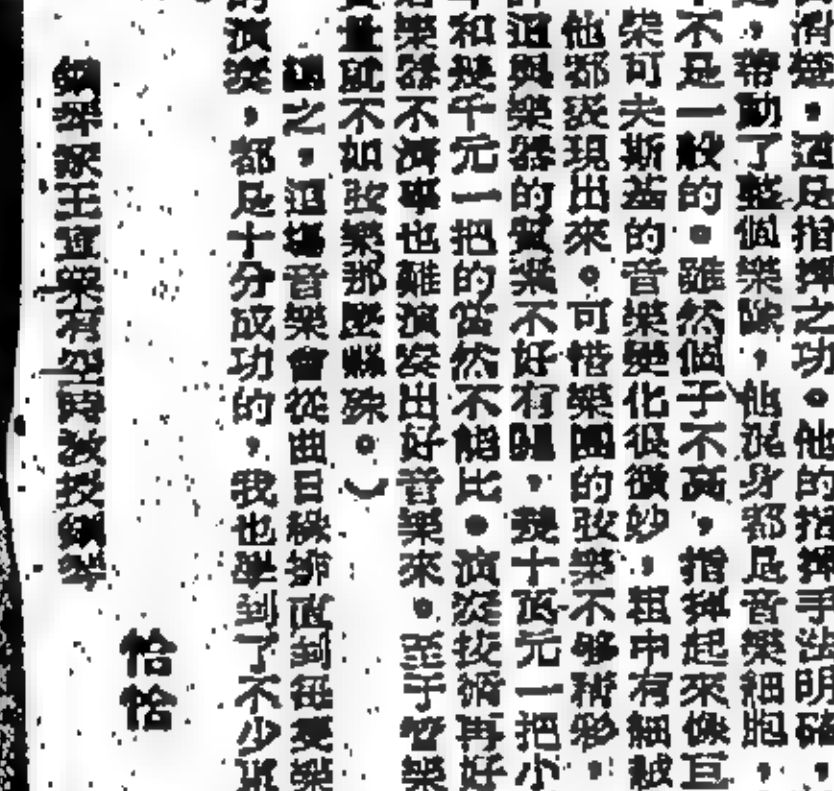 清楚，這是指揮之功。他的指揮手法明確，
，帶動了整個樂隊，他渾身都是音樂細胞，
不是一般的。雖然個子不高，指揮起來像巨
柴可夫斯基的音樂變化很微妙，粗中有細
他都表現出來。可惜樂團的弦樂不够精彩，
這與樂器的好不好有關，幾十萬元一把小
和幾千元一把的當然不能比。演奏技術再好
樂器不濟事也難演奏出好音樂來。至于管樂
就不如弦樂那麼特殊。）
之，這場音樂會從曲目安排到每
演奏，都是十分成功的，我也學到了不少
鋼琴家王宜樂有空時教授鋼琴
恰恰